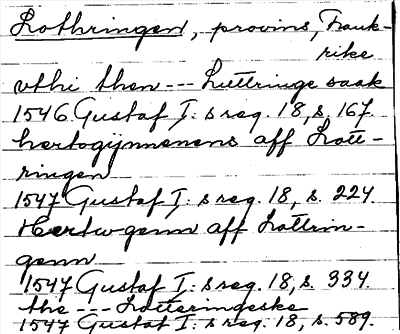 Lothringen, provins, Frank-
rike
vthi then --- Luttringe saak
1546 Gustaf I:s reg. 18, s. 167.
hertogijnnenens aff Lott-
ringen
1547 Gustaf I:s reg. 18, s. 224.
Hertwgenn aff Lottrin-
genn
1547 Gustaf I:s reg. 18, s. 334.
the --- Lotteringeske
1547 Gustaf I:s reg. 18, s. 589.